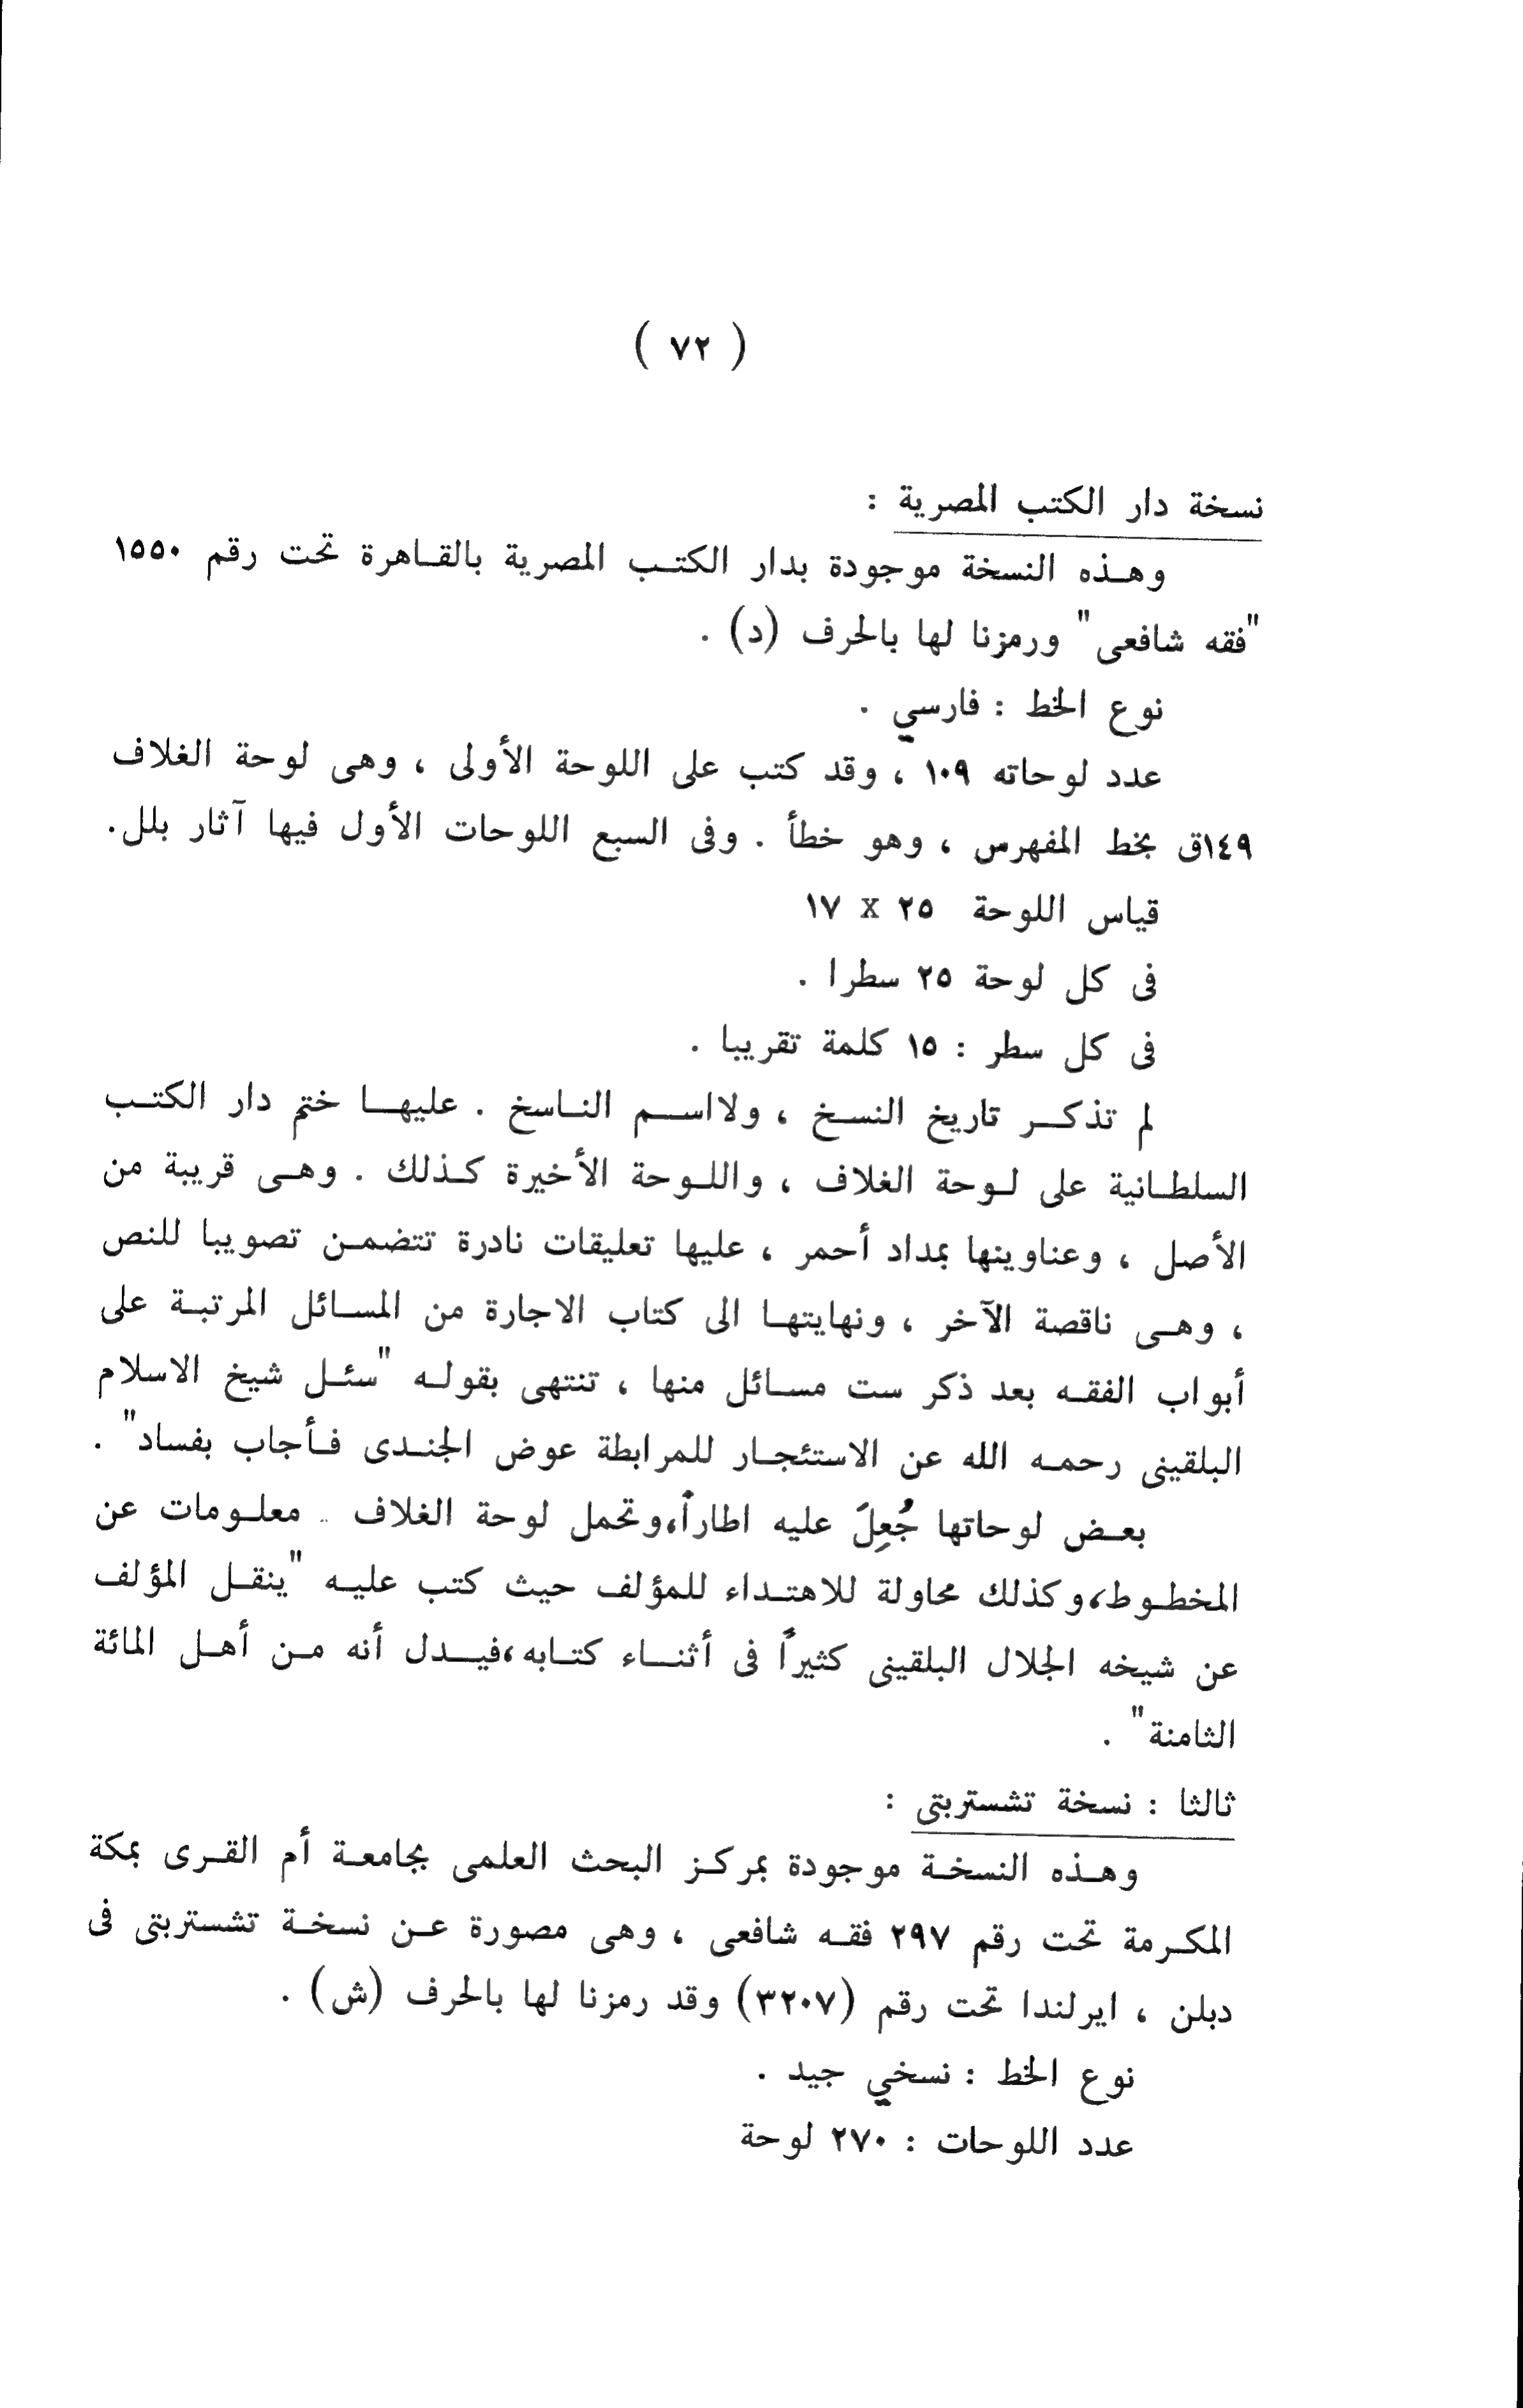 ( ٧٢ )
نسخة دار الكتب المصرية :
وهذه النسخة موجودة بدار الكتب المصرية بالقاهرة تحت رقم ١٥٥٠
"فقه شافعى" ورمزنا لها بالحرف (د) .
نوع الخط : فارسي .
عدد لوحاته ١٠٩ ، وقد كتب على اللوحة الأولى ، وهى لوحة الغلاف
١٤٩ق بخط المفهرس ، وهو خطأ . وفى السبع اللوحات الأول فيها آثار بلل.
قياس اللوحة ٢٥ x ١٧
فى كل لوحة ٢٥ سطرا .
فى كل سطر : ١٥ كلمة تقريبا .
لم تذكر تاريخ النسخ ، ولااسم الناسخ . عليها ختم دار الكتب
السلطانية على لوحة الغلاف ، واللوحة الأخيرة كذلك . وهى قريبة من
الأصل ، وعناوينها بمداد أحمر ، عليها تعليقات نادرة تتضمن تصويبا للنص
، وهى ناقصة الآخر ، ونهايتها الى كتاب الاجارة من المسائل المرتبة على
أبواب الفقه بعد ذكر ست مسائل منها ، تنتهى بقوله "سئل شيخ الاسلام
البلقينى رحمه الله عن الاستئجار للمرابطة عوض الجندى فأجاب بفساد" .
بعض لوحاتها جُعِلَ عليه اطاراً،وتحمل لوحة الغلاف معلومات عن
المخطوط،وكذلك محاولة للاهتداء للمؤلف حيث كتب عليه "ينقل المؤلف
عن شيخه الجلال البلقينى كثيراً فى أثناء كتابه،فيدل أنه من أهل المائة
الثامنة" .
ثالثا : نسخة تشستربتى :
وهذه النسخة موجودة بمركز البحث العلمى بجامعة أم القرى بمكة
المكرمة تحت رقم ٢٩٧ فقه شافعى ، وهى مصورة عن نسخة تشستربتى فى
دبلن ، ايرلندا تحت رقم (٣٢٠٧) وقد رمزنا لها بالحرف (ش) .
نوع الخط : نسخي جيد .
عدد اللوحات : ٢٧٠ لوحة